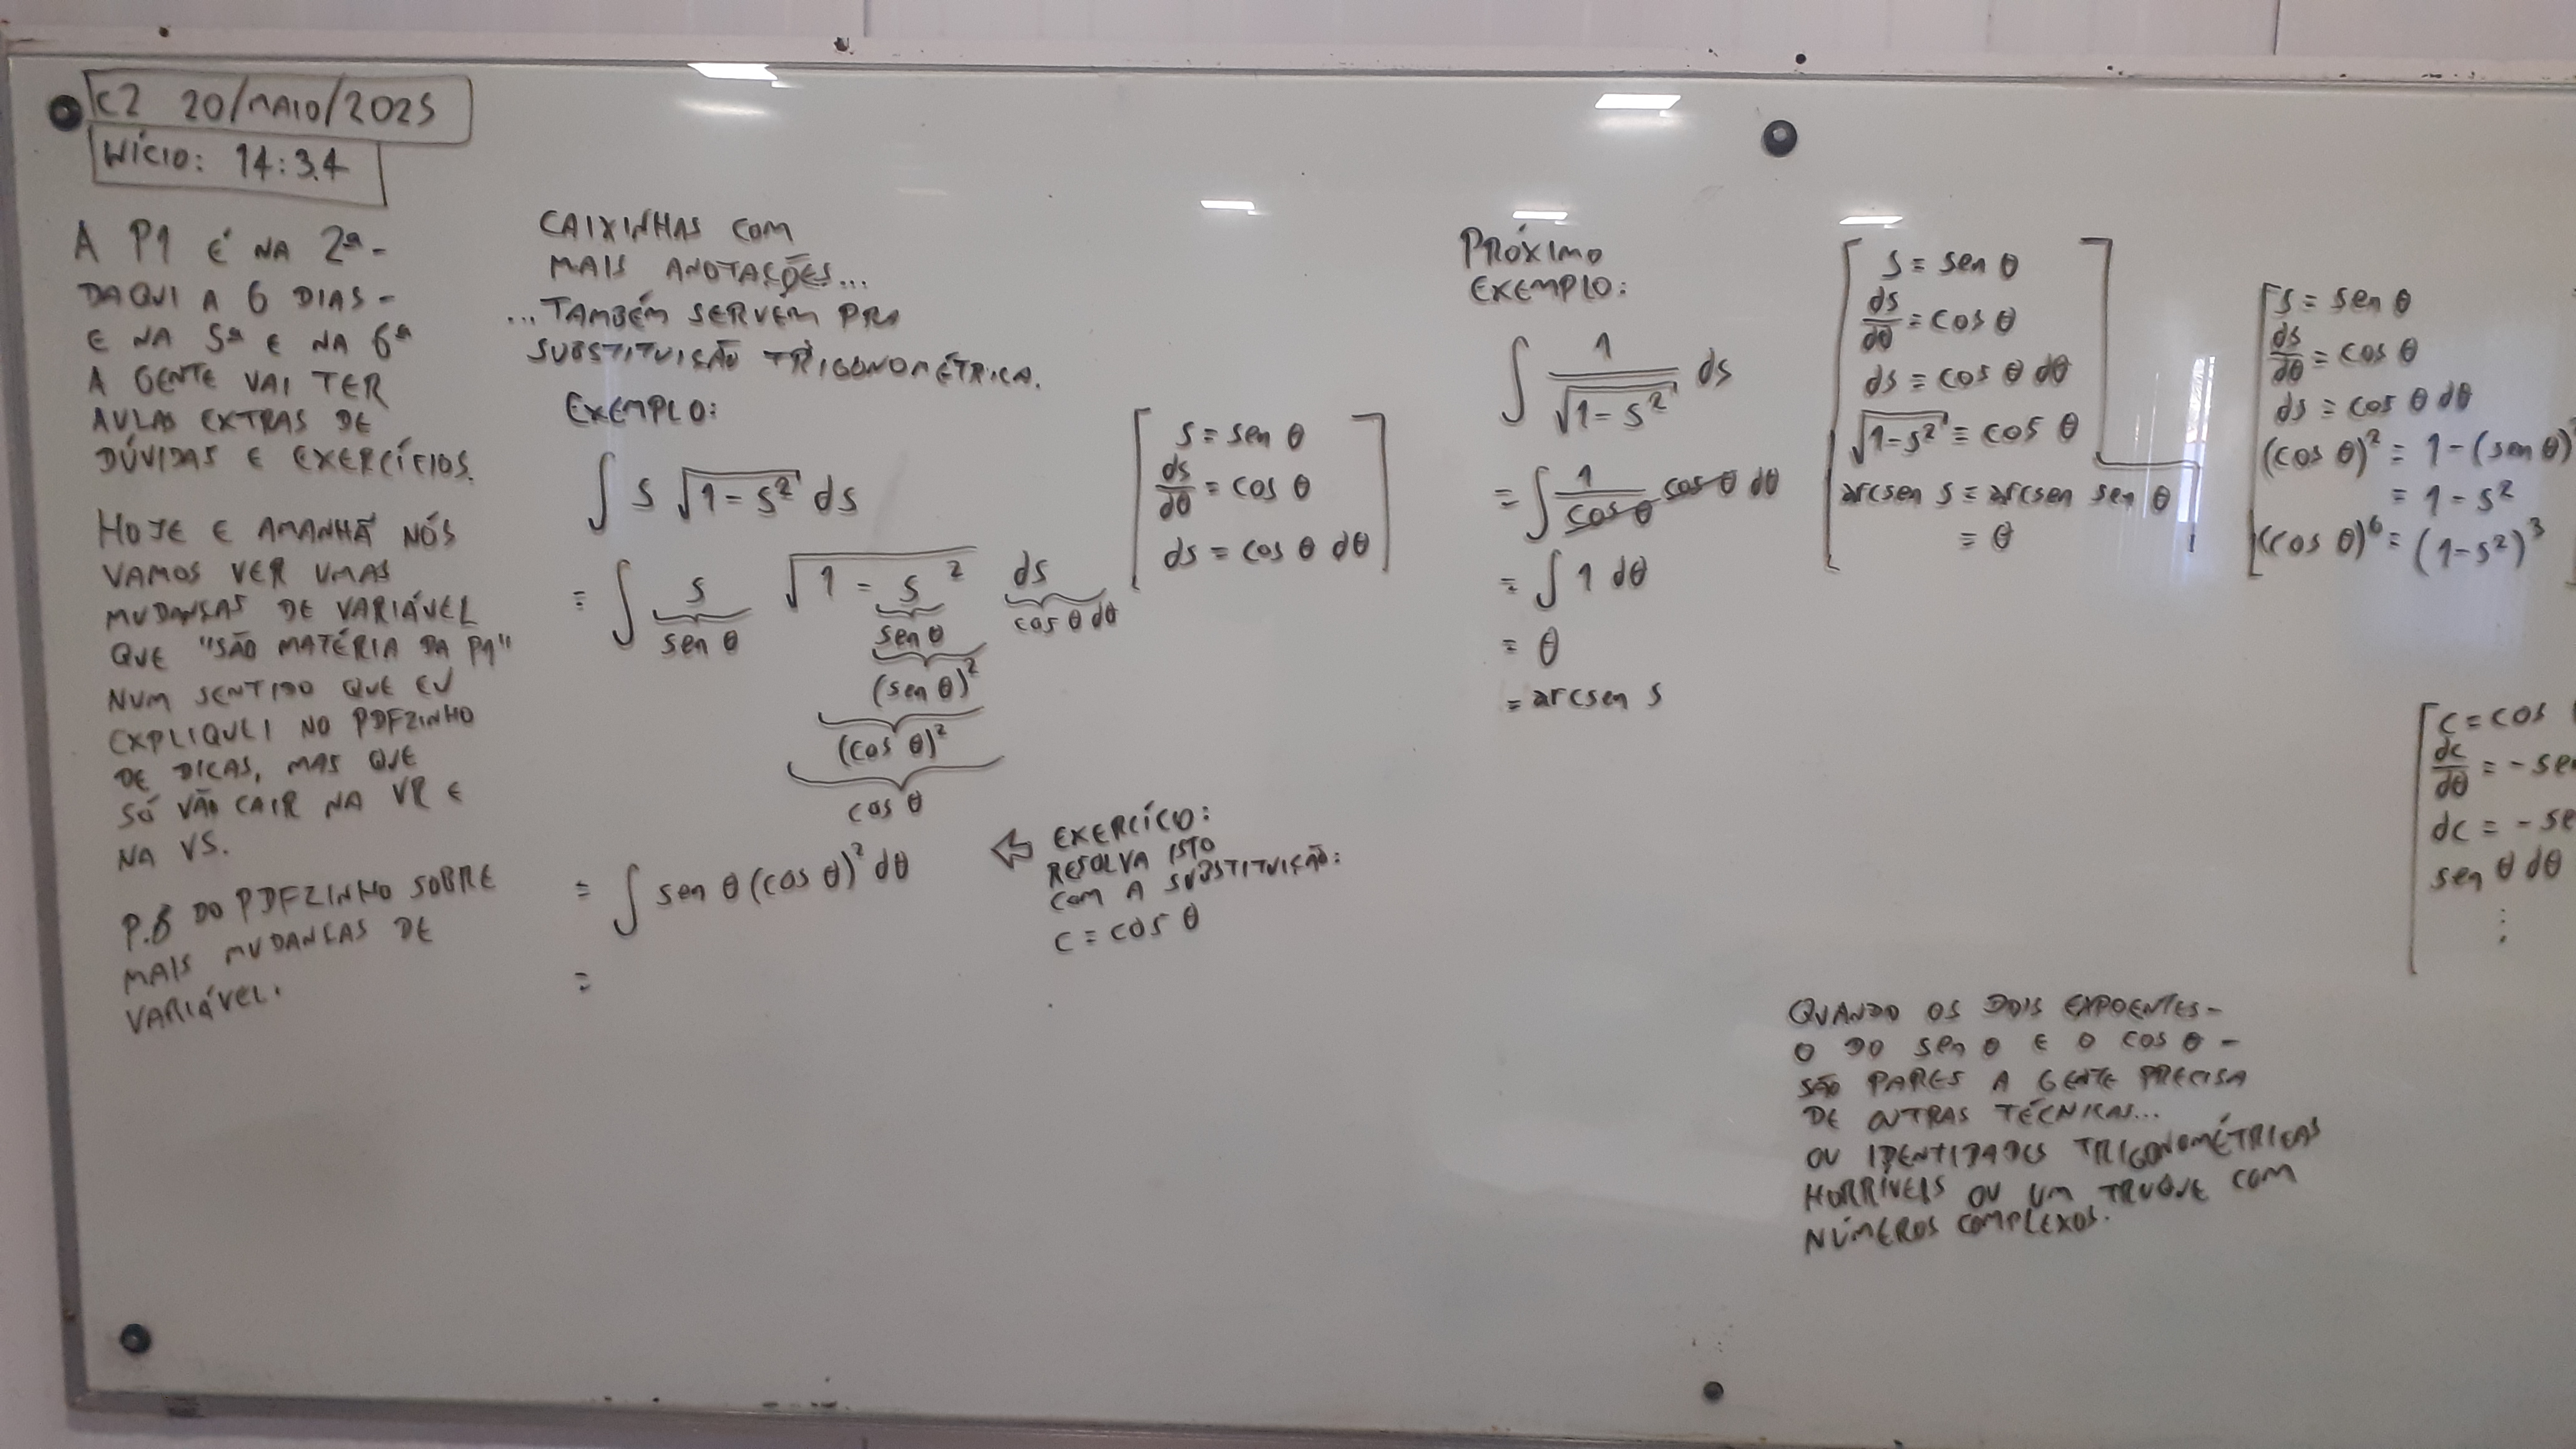 C2 20/MAIO/2025
INÍCIO: 14:34
A P1 É NA 2ª -
DAQUI A 6 DIAS -
E NA 5ª E NA 6ª
A GENTE VAI TER
AULAS EXTRAS DE
DÚVIDAS E EXERCÍCIOS.
HOJE E AMANHÃ NÓS
VAMOS VER UMAS
MUDANÇAS DE VARIÁVEL
QUE "SÃO MATÉRIA DA P1"
NUM SENTIDO QUE EU
EXPLIQUEI NO PDFZINHO
DE DICAS, MAS QUE
SÓ VÃO CAIR NA VR E
NA VS.
DO PDFZINHO SOBRE
MAIS MUDANÇAS DE
VARIÁVEL.
CAIXINHAS COM
MAIS ANOTAÇÕES...
...TAMBÉM SERVEM PRA
SUBSTITUIÇÃO TRIGONOMÉTRICA.
EXEMPLO:
∫ s √(1-s²) ds
= ∫ s √(1 - s²) ds
sen θ sen θ cos θ dθ
(sen θ)²
(cos θ)²
cos θ
= ∫ sen θ (cos θ)² dθ
=
[s = sen θ
ds/dθ = cos θ
ds = cos θ dθ]
⇐ EXERCÍCO:
RESOLVA ISTO
COM A SUBSTITUIÇÃO:
c = cos θ
PRÓXIMO
EXEMPLO:
∫ 1/√(1-s²) ds
= ∫ 1/cos θ cos θ dθ
= ∫ 1 dθ
= θ
= arcsen s
[s = sen θ
ds/dθ = cos θ
ds = cos θ dθ
√(1-s²) = cos θ
arcsen s = arcsen sen θ
= θ]
[s = sen θ
ds/dθ = cos θ
ds = cos θ dθ
(cos θ)² = 1-(sen θ)
= 1-s²
(cos θ)⁶ = (1-s²)³
[c = cos
dc/dθ = - se
dc = - se
sen θ dθ
⋮
QUANDO OS DOIS EXPOENTES -
O DO sen θ E O cos θ -
SÃO PARES A GENTE PRECISA
DE OUTRAS TÉCNICAS...
OU IDENTIDADES TRIGONOMÉTRICAS
HORRÍVEIS OU UM TRUQUE COM
NÚMEROS COMPLEXOS.